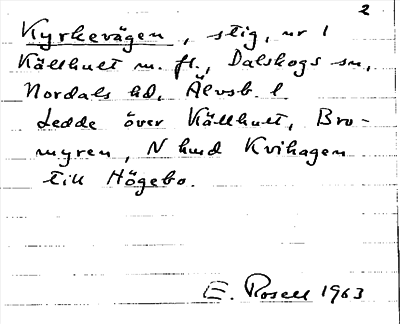 2
Kyrkevägen, stig, nr 1
Källhult m. fl., Dalskogs sn,
Nordals hd, Älvsb. l
Ledde över Källhult, Bro-
myren, N hmd Kvihagen
till Högebo.
E. Rosell 1963